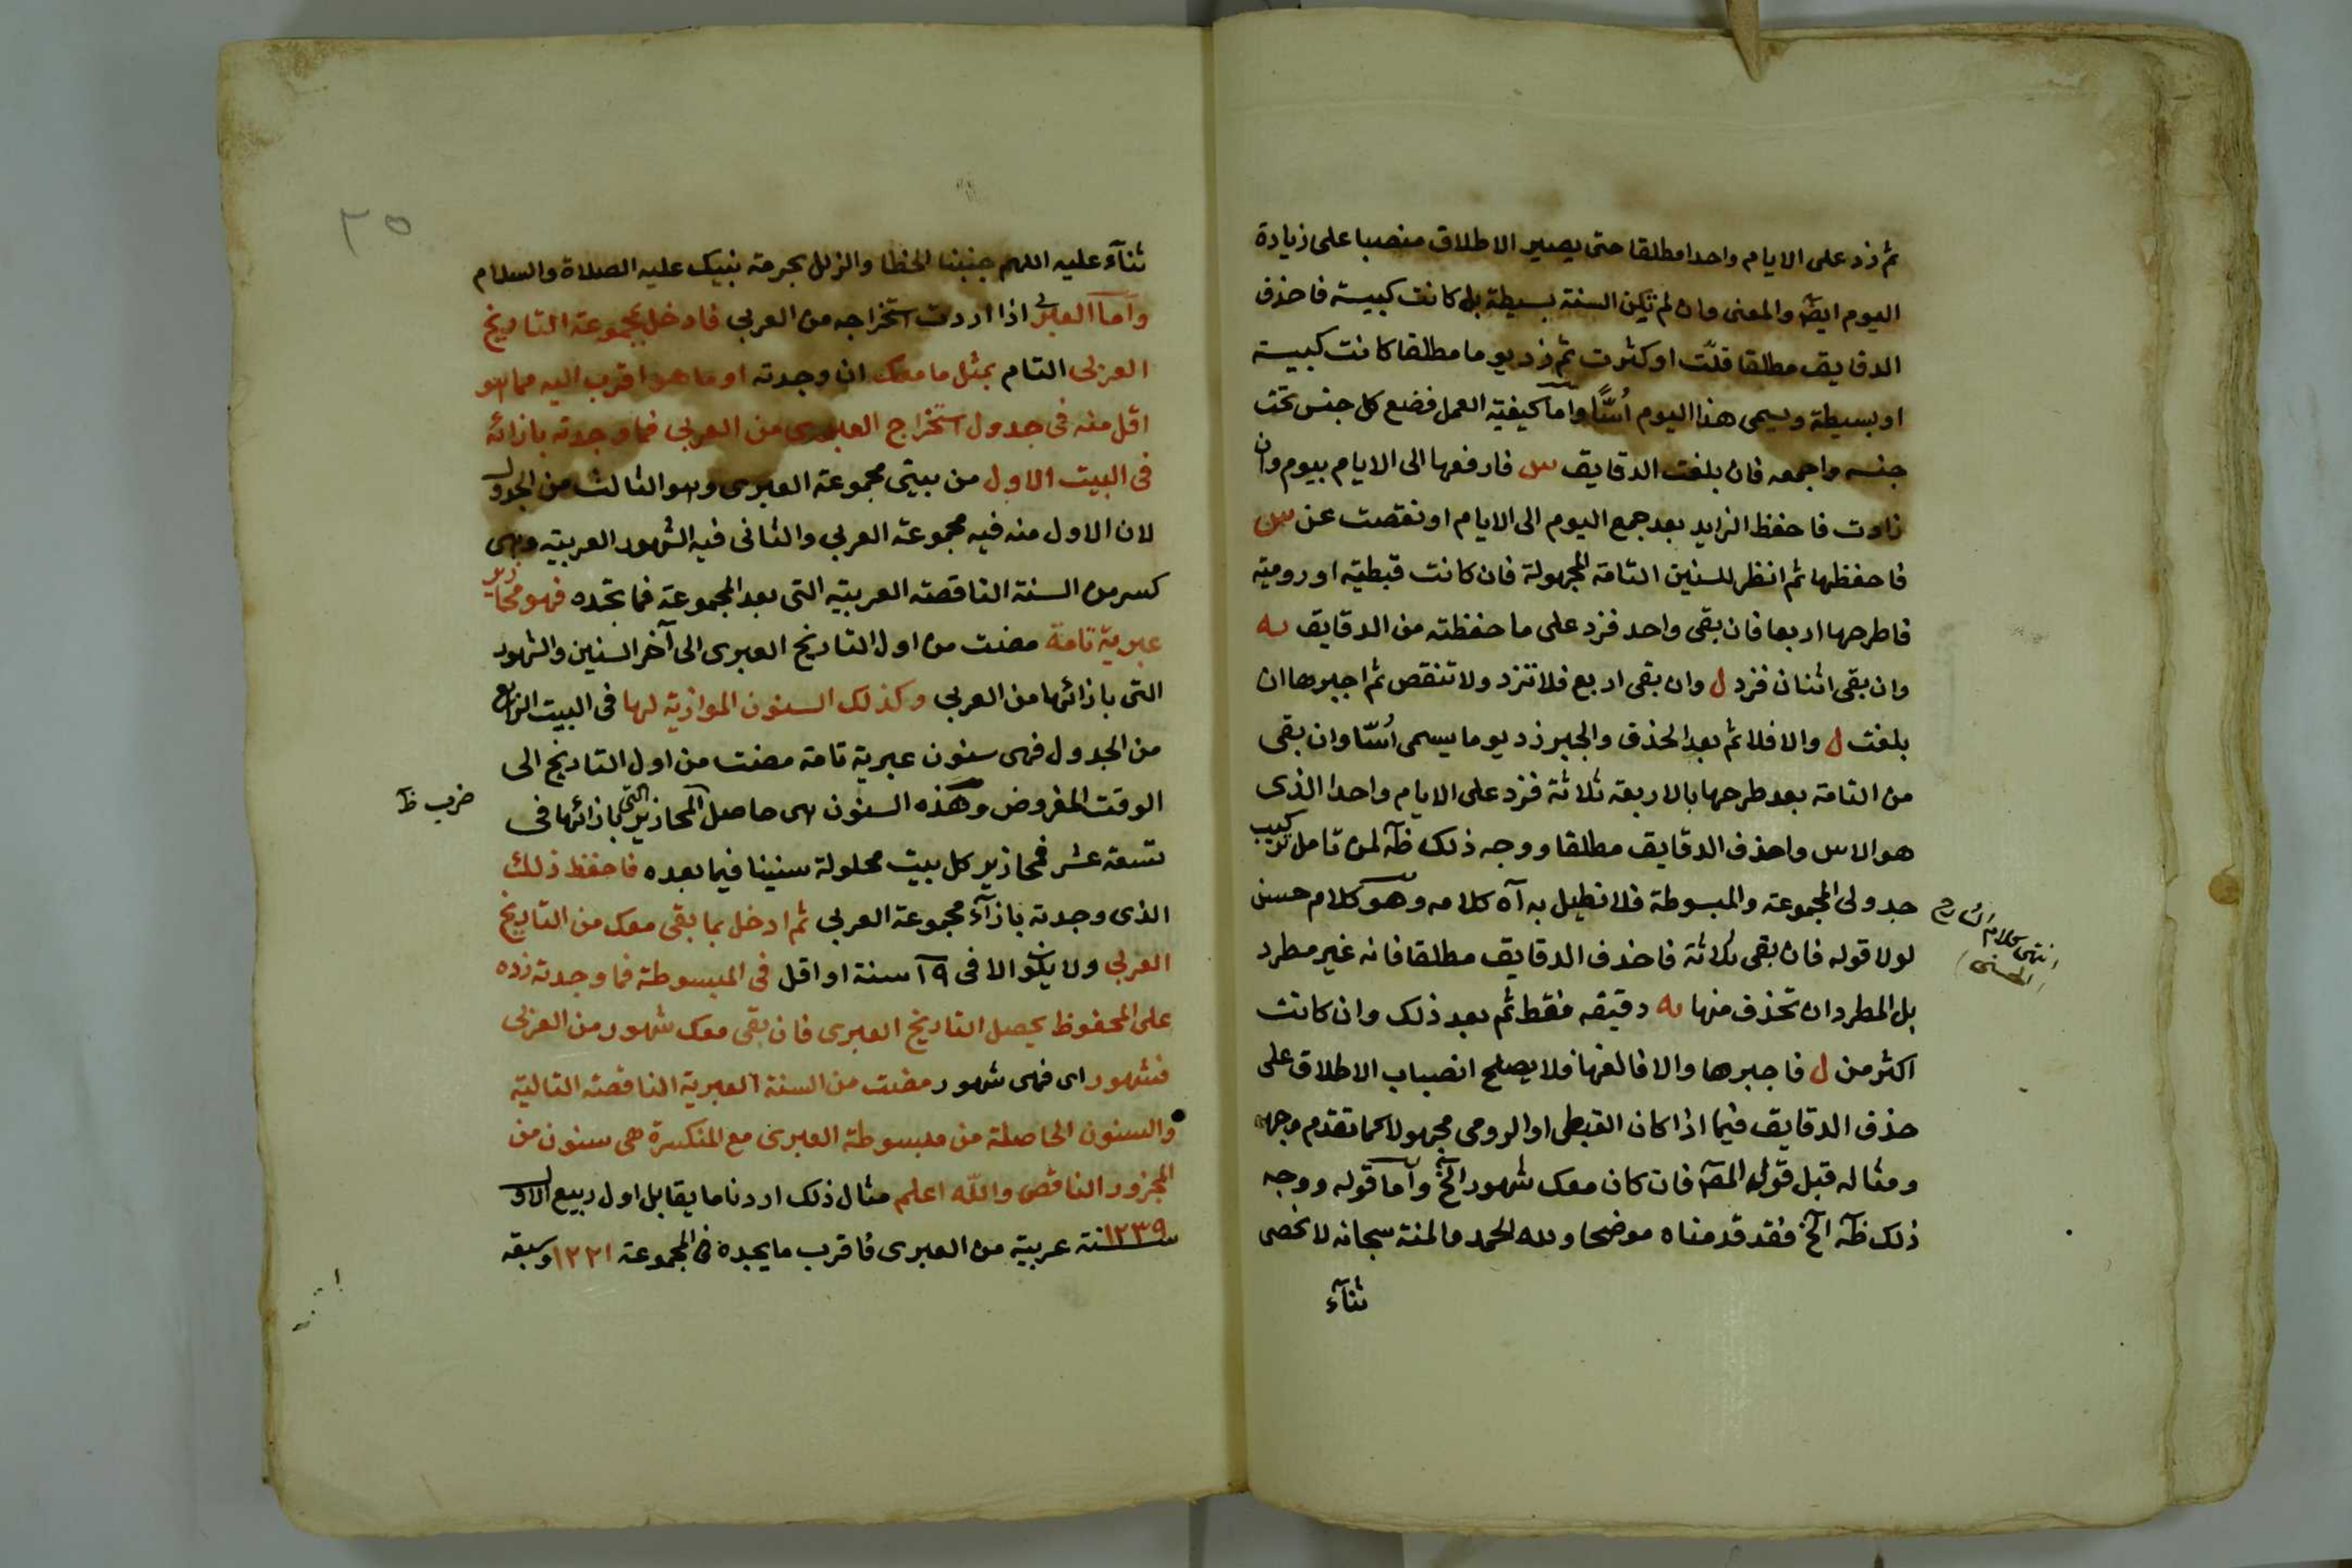 ثم زد على الايام واحدا مطلقا حتى يصير الاطلاق منصبا على زيادة
اليوم ايضا والمعنى وان لم تكن السنة بسيطة بل كانت كبيسة فاحذف
الدقايق مطلقا قلّت او كثرت ثم زد يوما مطلقا كانت كبيسة
او بسيطة ويسمى هذا اليوم أسًّا واما كيفية العمل فضع كل جنس تحت
جنسه واجمعه فان بلغت الدقايق س فارفعها الى الايام بيوم وان
زادت فاحفظ الزايد بعد جمع اليوم الى الايام او نقصت عن س
فاحفظها ثم انظر للسنين التامة المجهولة فان كانت قبطية او رومية
فاطرحها اربعا فان بقى واحد فزد على ما حفظته من الدقايق يه
وان بقى اثنان فزد ل وان بقى اربع فلا تزد ولا تنقص ثم اجبرها ان
بلغت ل والا فلا ثم بعد الحذف والجبر زد يوما يسمى أسّا وان بقى
من التامة بعد طرحها بالاربعة ثلاثة فزد على الايام واحدا الذى
هو الاس واحذف الدقايق مطلقا ووجه ذلك ظآ لمن تامل تركيب
جدولى المجموعة والمبسوطة فلا نطيل به آه كلامه وهو كلام حسن
انتهى كلام الشارح
الحسنى
لولا قوله فان بقى ثلاثة فاحذف الدقايق مطلقا فانه غير مطرد
بل المطرد ان تحذف منها يه دقيقه فقط ثم بعد ذلك وان كانت
اكثر من ل فاجبرها والا فالغها فلا يصلح انصباب الاطلاق على
حذف الدقايق فيما اذا كان القبطى او الرومى مجهولا كما تقدم وجهه
ومثاله قبل قول المصآ فان كان معك شهور الخ واما قوله ووجه
ذلك ظآ الخ فقد قدمناه موضحا ولله الحمد والمنة سبحانه لا نحصى
ثنآء
٣٥
ثنآء عليه اللهم جنبنا الخطا والزلل بحرمة نبيك عليه الصلاة والسلام
واما العبرى اذا اردت استخراجه من العربي فادخل بمجموعة التاريخ
العربى التام بمثل ما معك ان وجدته او ما هو اقرب اليه مما هو
اقل منه فى جدول استخراج العبرى من العربي فما وجدته بازائه
فى البيت الاول من بيتى مجموعة العبرى وهو الثالث من الجدول
لان الاول منه فيه مجموعة العربي والثانى فيه الشهور العربية وهى
كسر من السنة الناقصة العربية التى بعد المجموعة فما تجده فهو محازير
عبرية تامة مضت من اول التاريخ العبرى الى آخر السنين والشهور
التى بازائها من العربي وكذلك السنون الموازية لها فى البيت الرابع
من الجدول فهى سنون عبرية تامة مضت من اول التاريخ الى
الوقت المفروض وهذه السنون هى حاصل المحازير التى بازائها فى
ضرب ظآ
تسعة عشر فمحازير كل بيت محلولة سنينا فيما بعده فاحفظ ذلك
الذى وجدته بازآء مجموعة العربي ثم ادخل بما بقى معك من التاريخ
العربي ولا يكون الا فى ١٩ سنة او اقل فى المبسوطة فما وجدته زده
على المحفوظ يحصل التاريخ العبرى فان بقى معك شهور من العربى
فشهور اى فهى شهور مضت من السنة العبرية الناقصة التالية
والسنون الحاصلة من مبسوطة العبرى مع المنكسرة هى سنون من
المحزور الناقص والله اعلم مثال ذلك اردنا ما يقابل اول ربيع الاول
سنة ١٢٣٩ عربية من العبرى فاقرب ما يجده فى المجموعة ١٢٢١ وسبقه